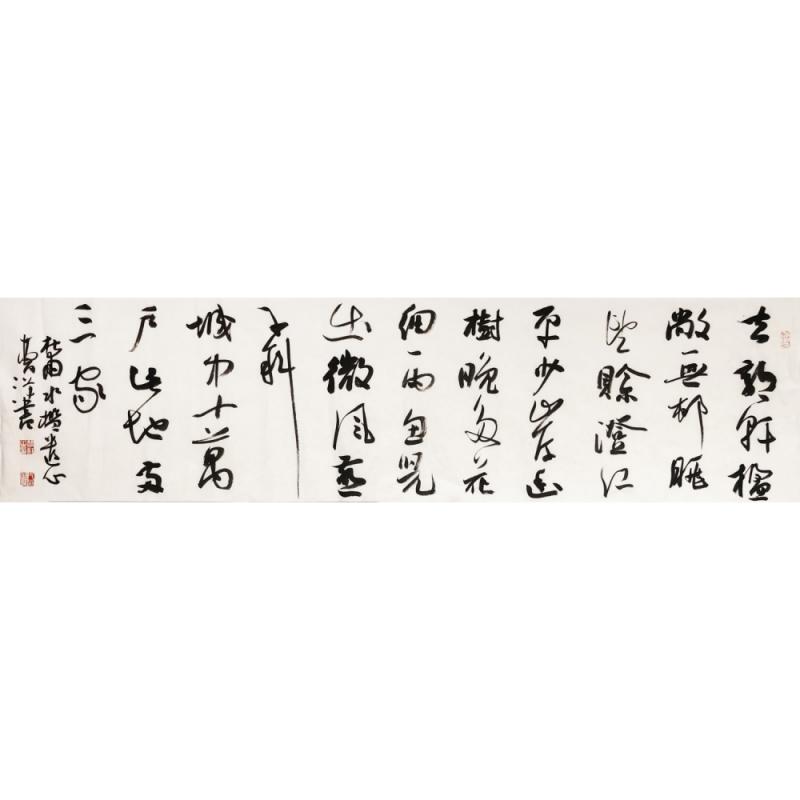 去郭轩楹
敞无村眺
望赊澄江
平少岸幽
樹晚多花
细雨鱼児
出微风燕
子斜
城中十万
户此地两
三家
杜甫水槛遣心
書